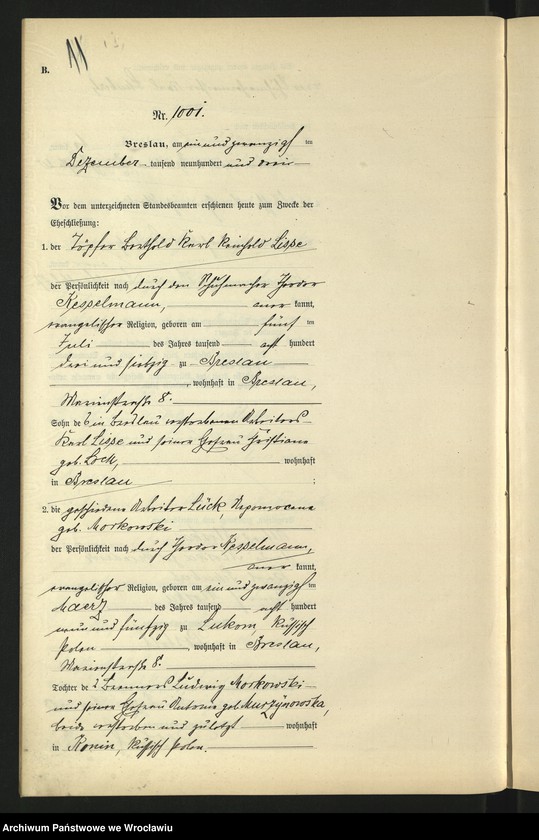 11
B.
Nr. 1001.
Breslau, am einundzwanzigsten
Dezember tausend neunhundert und drei
Vor dem unterzeichneten Standesbeamten erschienen heute zum Zwecke der
Eheschließung:
1. der Töpfer Berthold Karl Reinhold Lippe
der Persönlichkeit nach durch den Schuhmacher Theodor
Kesselmann, aner kannt,
evangelischer Religion, geboren am fünf ten
Juli des Jahres tausend acht hundert
drei und siebzig zu Breslau
, wohnhaft in Breslau,
Marienstraße 8.
Sohn des in Breslau verstorbenen Arbeiters
Karl Lippe und seiner Ehefrau Christiane
geb. Lock, wohnhaft
in Breslau ;
2. die geschiedene Arbeiter Lück, Nepomocena
geb. Morkowski
der Persönlichkeit nach durch Theodor Kesselmann,
aner kannt,
evangelischer Religion, geboren am einundzwanzigsten
Maerz des Jahres tausend acht hundert
neun und fünfzig zu Lukom, Russisch
Polen, wohnhaft in Breslau,
Marienstraße 8.
Tochter des Ludwig Morkowski
und seiner Ehefrau Antonie geb. Murzynowska,
beide verstorben und zuletzt wohnhaft
in Konin, Russisch Polen.
Archiwum Państwowe we Wrocławiu